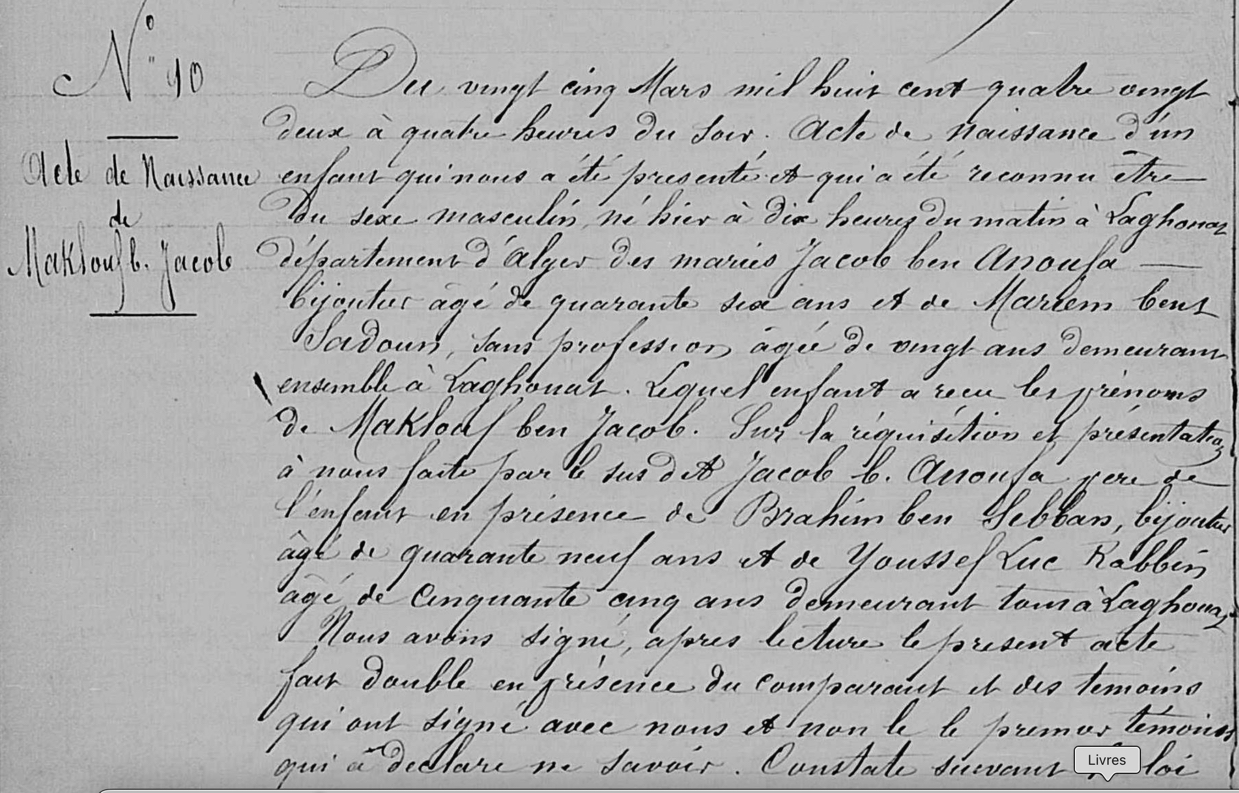 N° 10
Acte de Naissance
de
Maklouf b. Jacob
Du vingt cinq Mars mil huit cent quatre vingt
deux à quatre heures du soir. Acte de naissance d'un
enfant qui nous a été présenté et qui a été reconnu être
du sexe masculin, né hier à dix heures du matin à Laghouat
département d'Alger des mariés Jacob ben Anoufa —
bijoutier âgé de quarante six ans et de Mariem bent
Sadoun, sans profession âgée de vingt ans demeurant
ensemble à Laghouat. Lequel enfant a reçu les prénoms
de Maklouf ben Jacob. Sur la réquisition et présentation
à nous faite par le sus dit Jacob b. Anoufa père de
l'enfant en présence de Brahim ben Sebban, bijoutier
âgé de quarante neuf ans et de Youssef Luc Rabbin
âgé de Cinquante cinq ans demeurant tous à Laghouat
Nous avons signé, après lecture le présent acte
fait double en présence du comparant et des témoins
qui ont signé avec nous et non le le premier témoins
qui a déclaré ne savoir. Constaté suivant loi
Livres